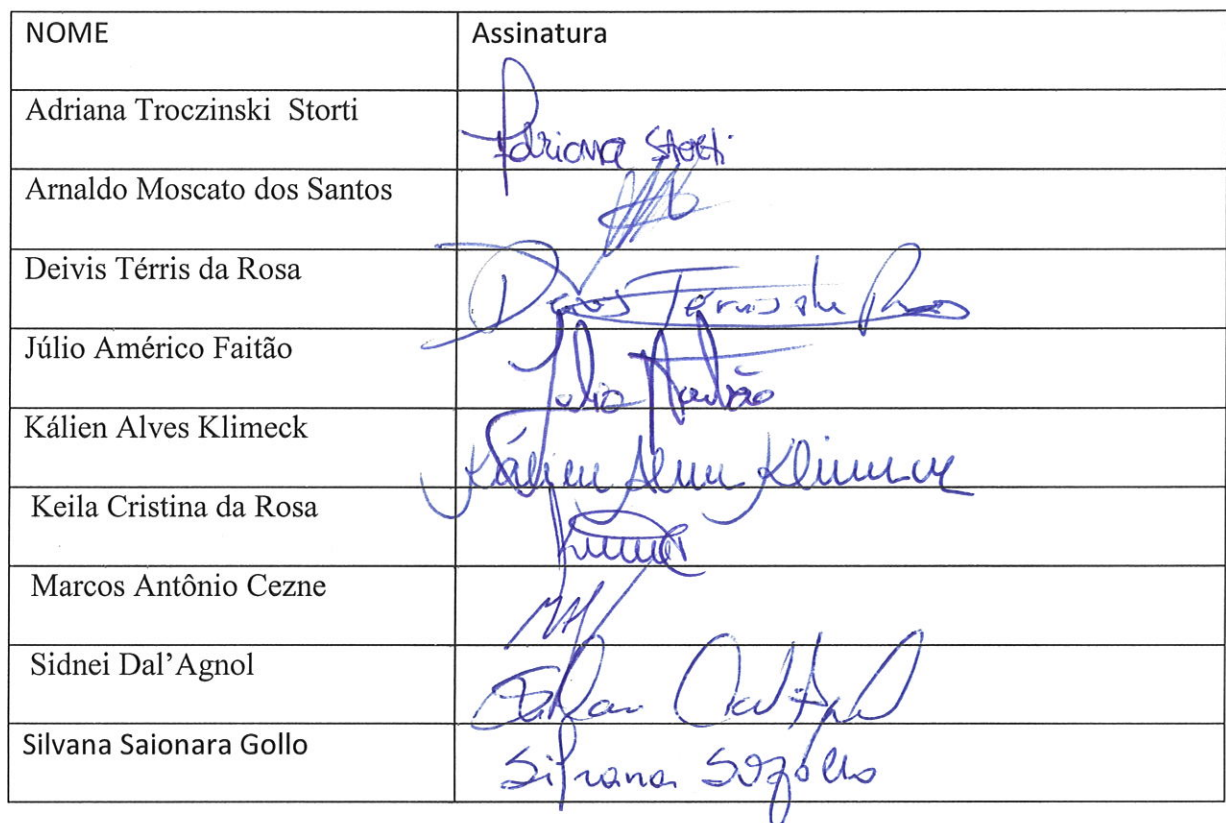 NOME Assinatura
Adriana Troczinski Storti Adriana Storti
Arnaldo Moscato dos Santos
Deivis Térris da Rosa Deivis Térris da Rosa
Júlio Américo Faitão Julio Faitão
Kálien Alves Klimeck Kálien Alves Klimeck
Keila Cristina da Rosa
Marcos Antônio Cezne
Sidnei Dal’Agnol
Silvana Saionara Gollo Silvana